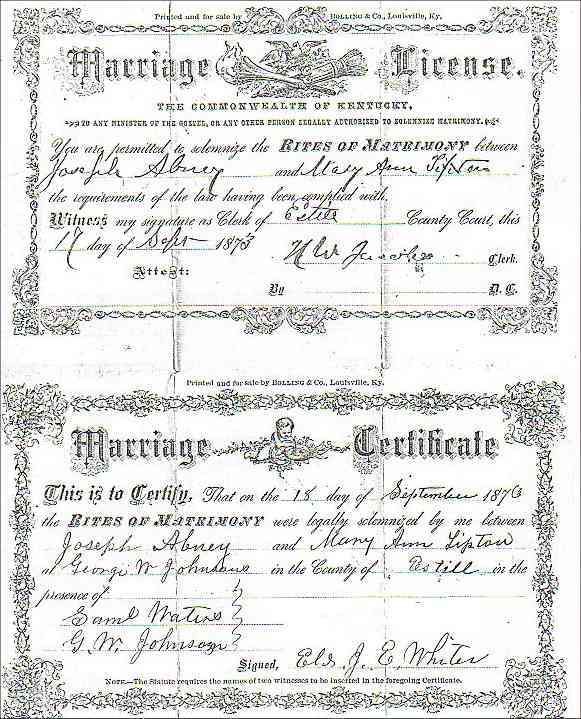 Printed and for sale by BOLLING & Co., Louisville, Ky.
Marriage License.
THE COMMONWEALTH OF KENTUCKY,
TO ANY MINISTER OF THE GOSPEL, OR ANY OTHER PERSON LEGALLY AUTHORIZED TO SOLEMNIZE MATRIMONY.
You are permitted to solemnize the RITES OF MATRIMONY between
Joseph Abney and Mary Ann Tipton
the requirements of the law having been complied with.
Witness my signature as Clerk of Estill County Court, this
17 day of Sept 1873 Clerk.
Attest:
By D. C.
Printed and for sale by BOLLING & Co., Louisville, Ky.
Marriage Certificate
This is to Certify, That on the 18 day of September 1873
the RITES OF MATRIMONY were legally solemnized by me between
Joseph Abney and Mary Ann Tipton
at George W Johnsons in the County of Estill in the
presence of
Saml Waters
G. W. Johnson
Signed, Eld. J. E. White
NOTE—The Statute requires the names of two witnesses to be inserted in the foregoing Certificate.